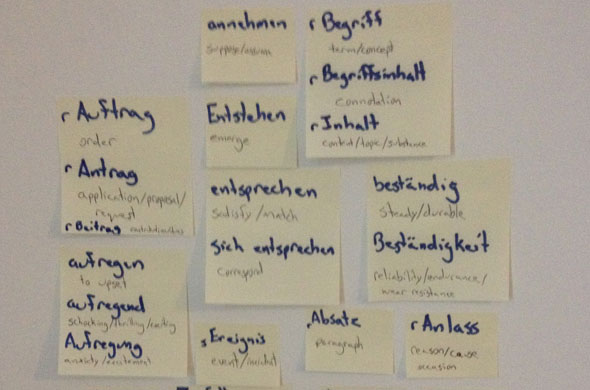 annehmen
suppose/assume
r Begriff
term/concept
r Begriffsinhalt
connotation
r Inhalt
content/topic/substance
r Auftrag
order
r Antrag
application/proposal/
request
r Beitrag
Entstehen
emerge
entsprechen
satisfy/match
sich entsprechen
correspond
beständig
steady/durable
Beständigkeit
reliability/endurance/
wear resistance
aufregen
to upset
aufregend
schocking/thrilling/exciting
Aufregung
anxiety/excitement
s Ereignis
event/incident
r Absatz
paragraph
r Anlass
reason/cause
occasion